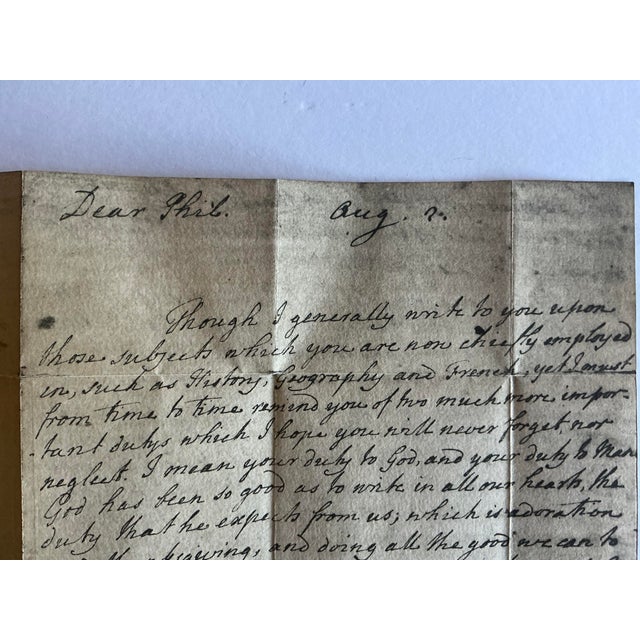 Dear Phil. Aug. 2.
Though I generally write to you upon
those subjects which you are now chiefly employed
in, such as History, Geography and French, yet I must
from time to time remind you of two much more impor-
-tant dutys which I hope you will never forget nor
neglect. I mean your duty to God, and your duty to Man
God has been so good as to write in all our hearts, the
duty that he expects from us; which is adoration
and doing all the good we can to